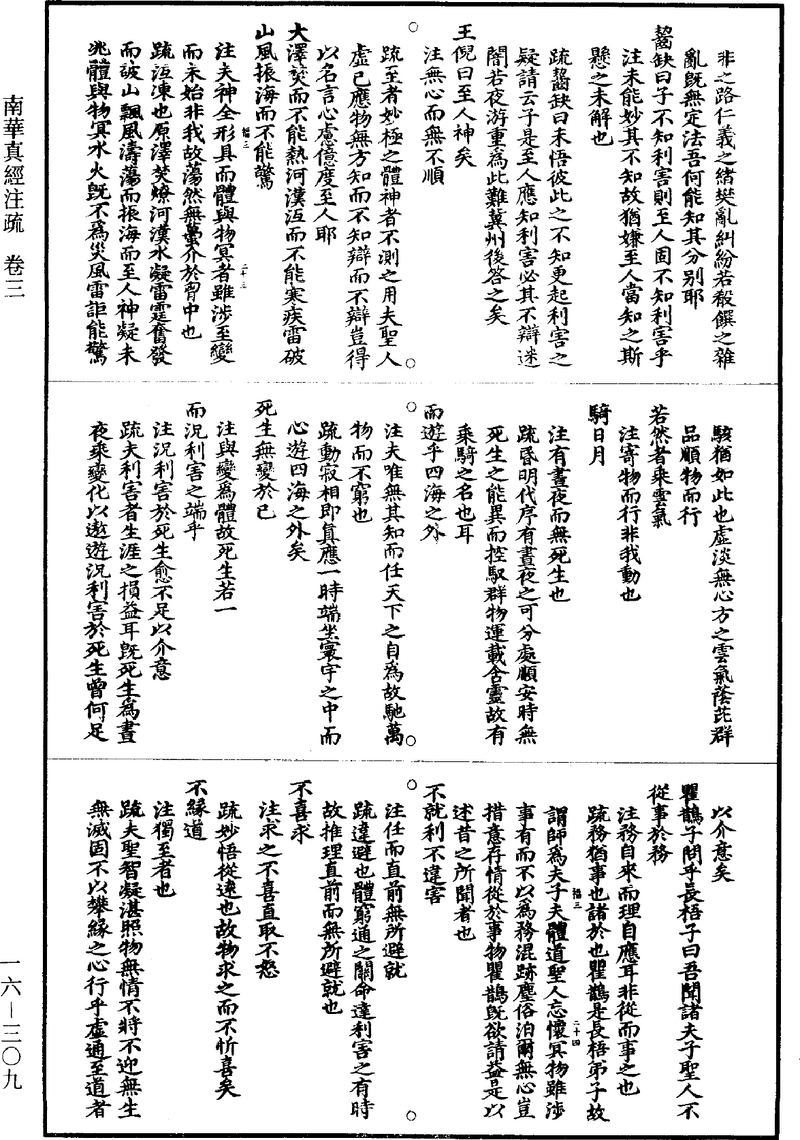 非之路仁義之緒樊亂糾紛若殽饌之雜
亂既無定法吾何能知其分別耶
齧缺曰子不知利害則至人固不知利害乎
注未能妙其不知故猶嫌至人當知之斯
懸之未解也
疏齧缺曰未悟彼此之不知更起利害之
疑請云子是至人應知利害必其不辯迷
闇若夜游重為此難冀州後答之矣
王倪曰至人神矣
注無心而無不順
疏至者妙極之體神者不測之用夫聖人
虛己應物無方知而不知辯而不辯豈得
以名言心慮億度至人耶
大澤焚而不能熱河漢沍而不能寒疾雷破
山風振海而不能驚
注夫神全形具而體與物冥者雖涉至變
而未始非我故蕩然無蠆介於胷中也
疏沍凍也原澤焚燎河漢水凝雷霆奮發
而破山飄風濤蕩而振海而至人神凝未
兆體與物冥水火既不為災風雷詎能驚
駭猶如此也虛淡無心方之雲氣蔭芘群
品順物而行
若然者乘雲氣
注寄物而行非我動也
騎日月
注有晝夜而無死生也
疏昏明代序有晝夜之可分處順安時無
死生之能異而控馭群物運載含靈故有
乘騎之名也耳
而遊乎四海之外
注夫唯無其知而任天下之自為故馳萬
物而不窮也
疏動寂相即真應一時端坐寰宇之中而
心遊四海之外矣
死生無變於己
注與變為體故死生若一
而況利害之端乎
注況利害於死生愈不足以介意
疏夫利害者生涯之損益耳既死生為晝
夜乘變化以遨遊況利害於死生曾何足
以介意矣
瞿鵲子問乎長梧子曰吾聞諸夫子聖人不
從事於務
注務自來而理自應耳非從而事之也
疏務猶事也諸於也瞿鵲是長梧弟子故
謂師為夫子夫體道聖人忘懷冥物雖涉
事有而不以為務混跡塵俗泊爾無心豈
措意存情從於事物瞿鵲既欲請益是以
述昔之所聞者也
不就利不違害
注任而直前無所避就
疏違避也體窮通之關命達利害之有時
故推理直前而無所避就也
不喜求
注求之不喜直取不怒
疏妙悟從違也故物求之而不忻喜矣
不緣道
注獨至者也
疏夫聖智凝湛照物無情不將不迎無生
無滅固不以攀緣之心行乎虛通至道者
南華真經注疏 卷三
一六—三〇九
福三
二十三
福三
二十四